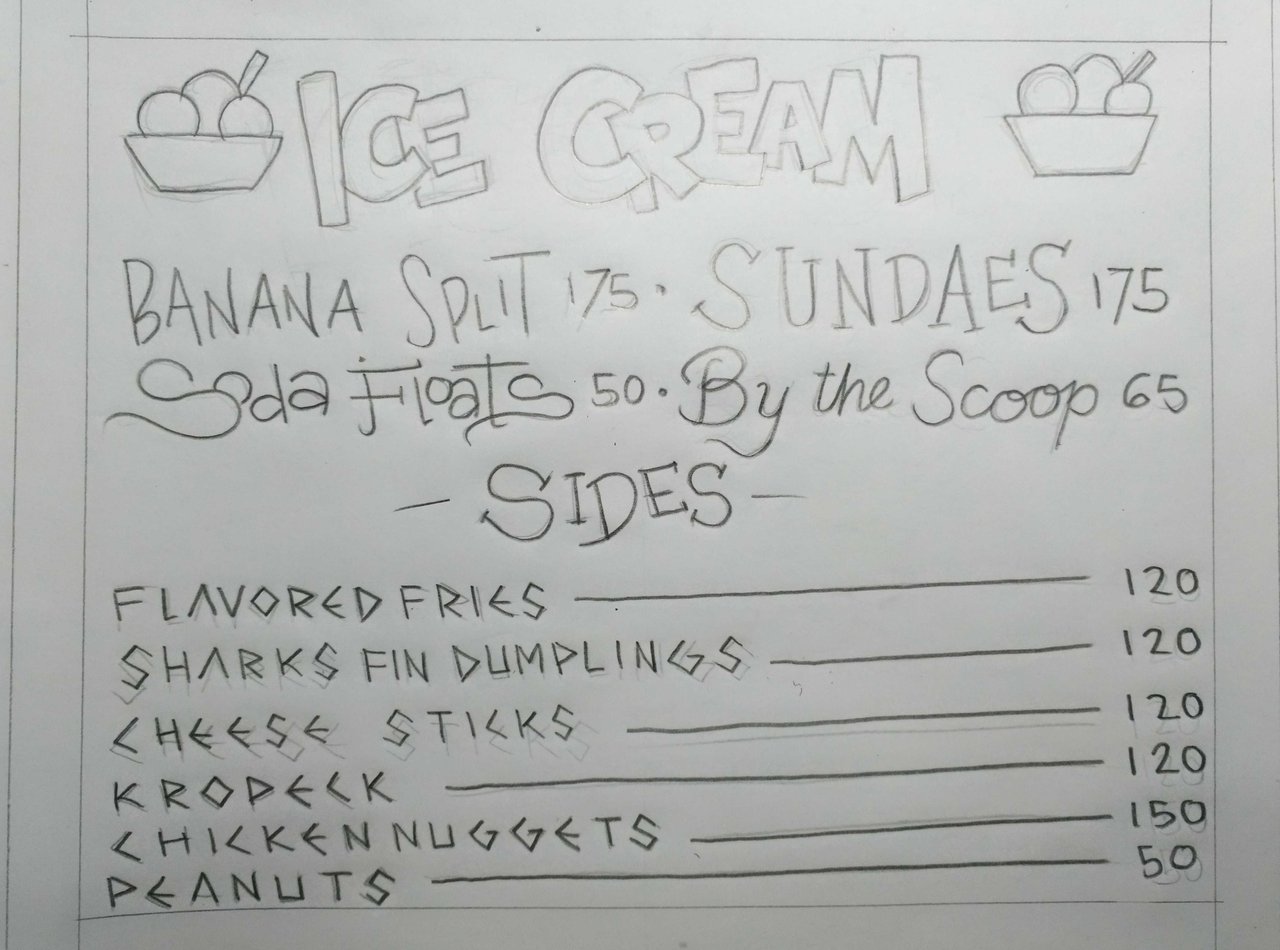 ICE CREAM
BANANA SPLIT 175 · SUNDAES 175
Soda Floats 50 · By the Scoop 65
- SIDES -
FLAVORED FRIES 120
SHARKS FIN DUMPLINGS 120
CHEESE STICKS 120
KROPECK 120
CHICKEN NUGGETS 150
PEANUTS 50